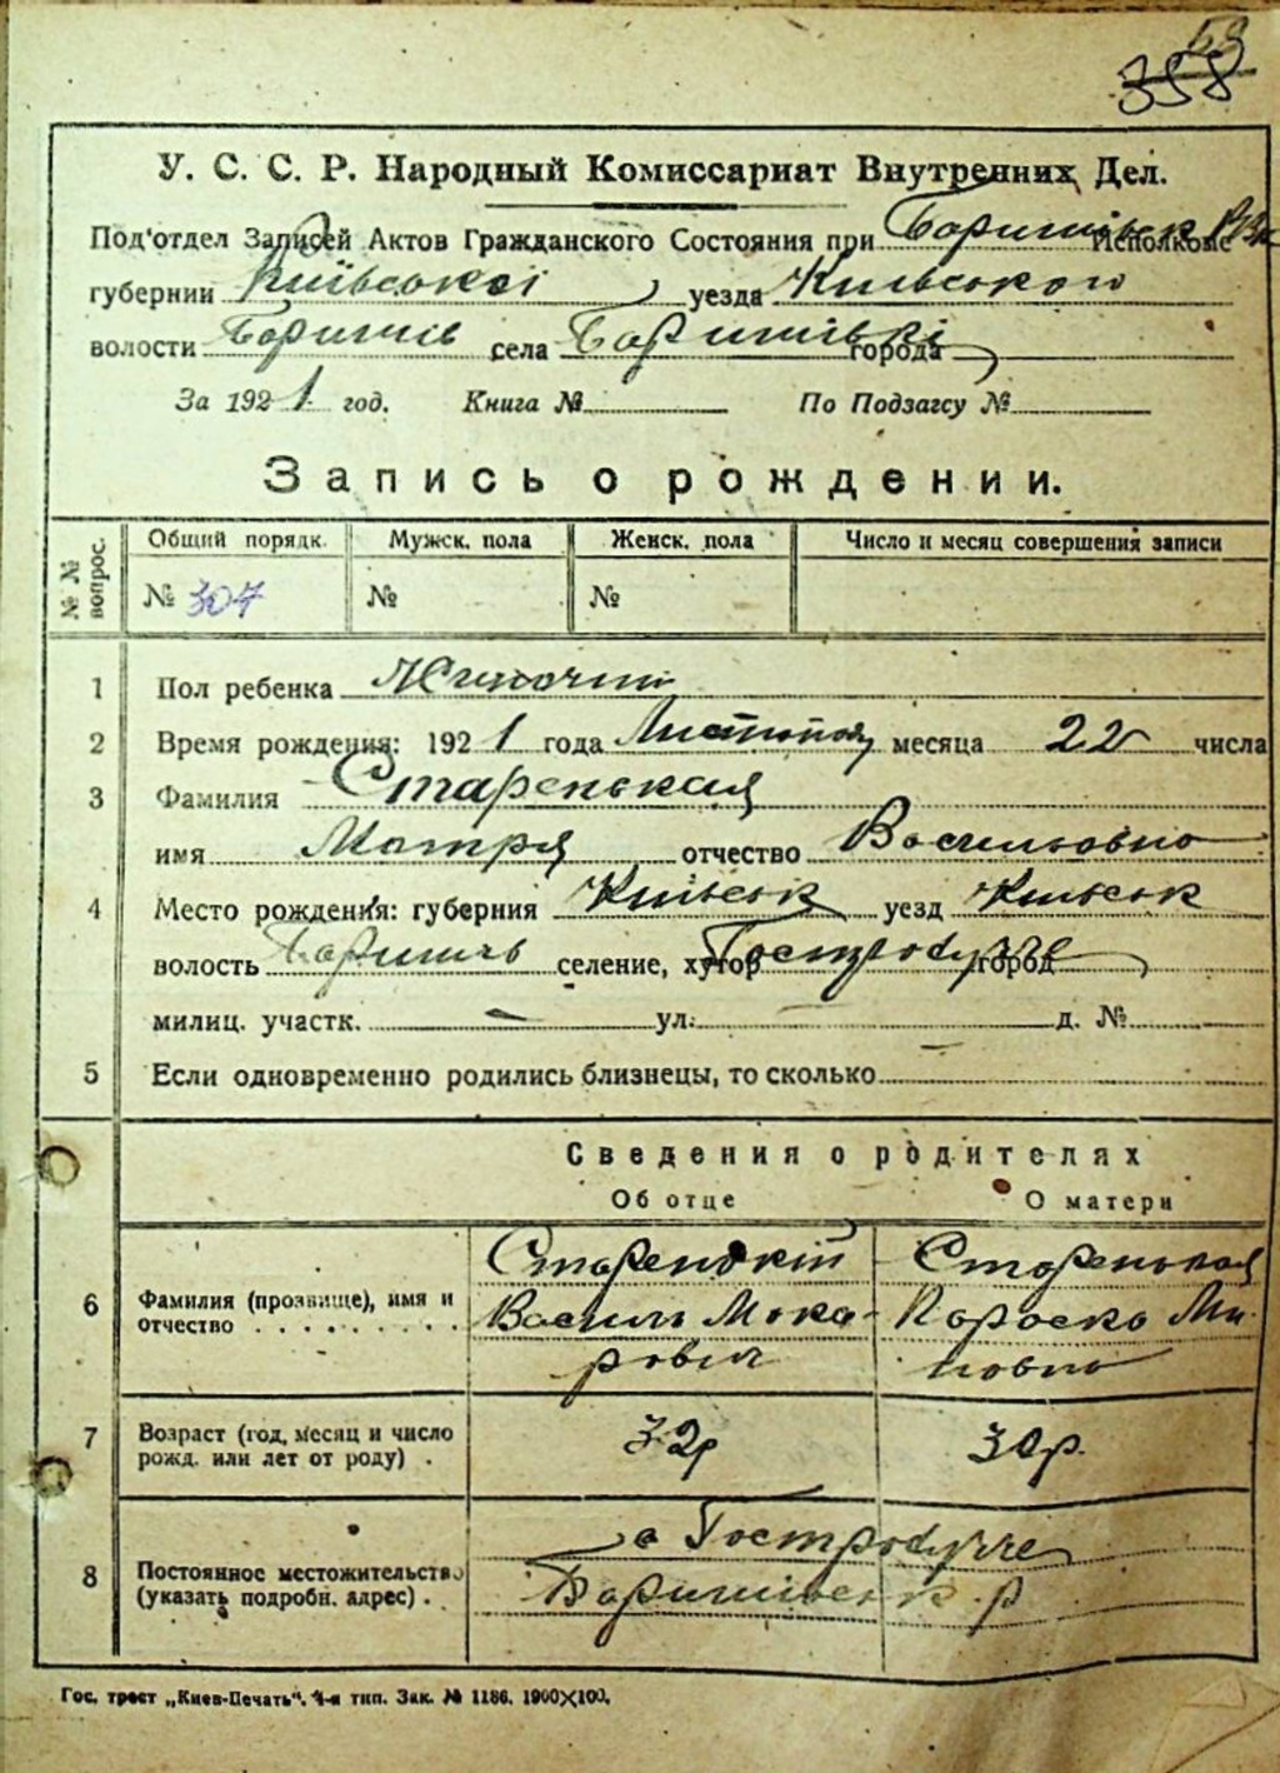 358
У. С. С. Р. Народный Комиссариат Внутренних Дел.
Под'отдел Записей Актов Гражданского Состояния при Баришівськ Исполкоме РВК
губернии Київської уезда Київського
волости Баришів села Баришівкі города
За 1921 год. Книга № По Подзагсу №
Запись о рождении.
№ № вопрос. Общий порядк. Мужск. пола Женск. пола Число и месяц совершения записи
№ 307 № №
1 Пол ребенка Жиночий
2 Время рождения: 1921 года Листопад месяца 22 числа
3 Фамилия Старенькая
имя Мотря отчество Васильовна
4 Место рождения: губерния Київськ уезд Київськ
волость Баришів селение, хутор город
милиц. участк. — ул. — д. №
5 Если одновременно родились близнецы, то сколько —
Сведения о родителях
Об отце О матери
6 Фамилия (прозвище), имя и отчество Старенький Василь Мака- рович Старенькая Параска Ми- новна
7 Возраст (год, месяц и число рожд. или лет от роду) . 32р 30р.
8 Постоянное местожительство (указать подробн. адрес) . Баришівськ. р
Гос. трест „Киев-Печать“. 4-я тип. Зак. № 1186. 1900×100.